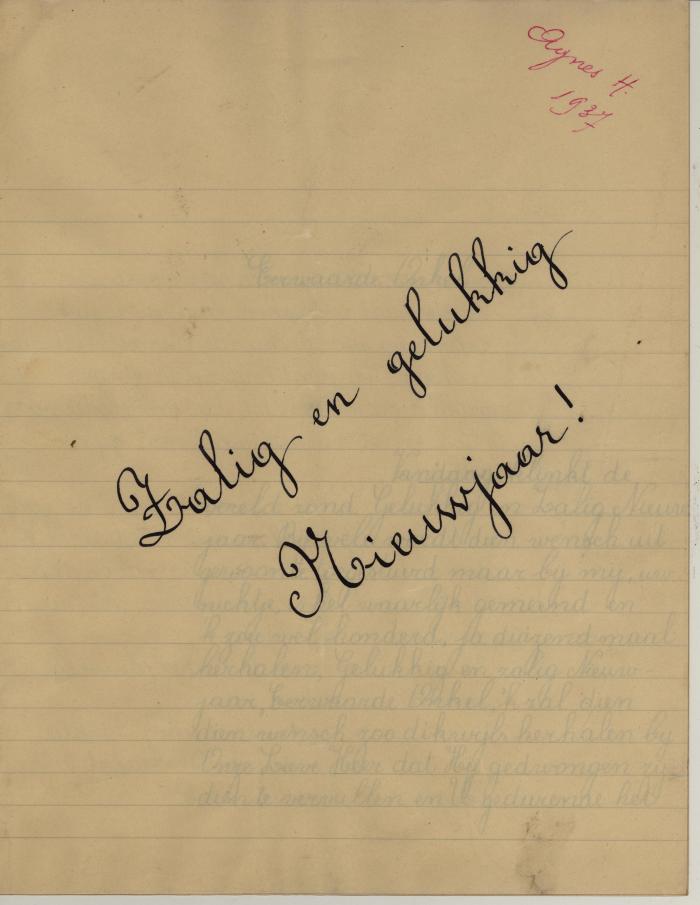 Agnes H.
1937
Zalig en gelukkig
Nieuwjaar!
Eerwaarde Onkel
Vandaag klinkt de
wereld rond Gelukkig en Zalig Nieuw-
jaar. dien wensch uit
maar by my, uw
nichtje, wel waarlyk gemeend en
'k zou wel honderd, ja duizend maal
herhalen, Gelukkig en zalig Nieuw-
jaar, Eerwaarde Onkel, 'k zal dien
dien wensch zoo dikwyls herhalen by
Onze Lieve Heer dat Hy gedwongen zy
dien te vervullen en U gedurende het